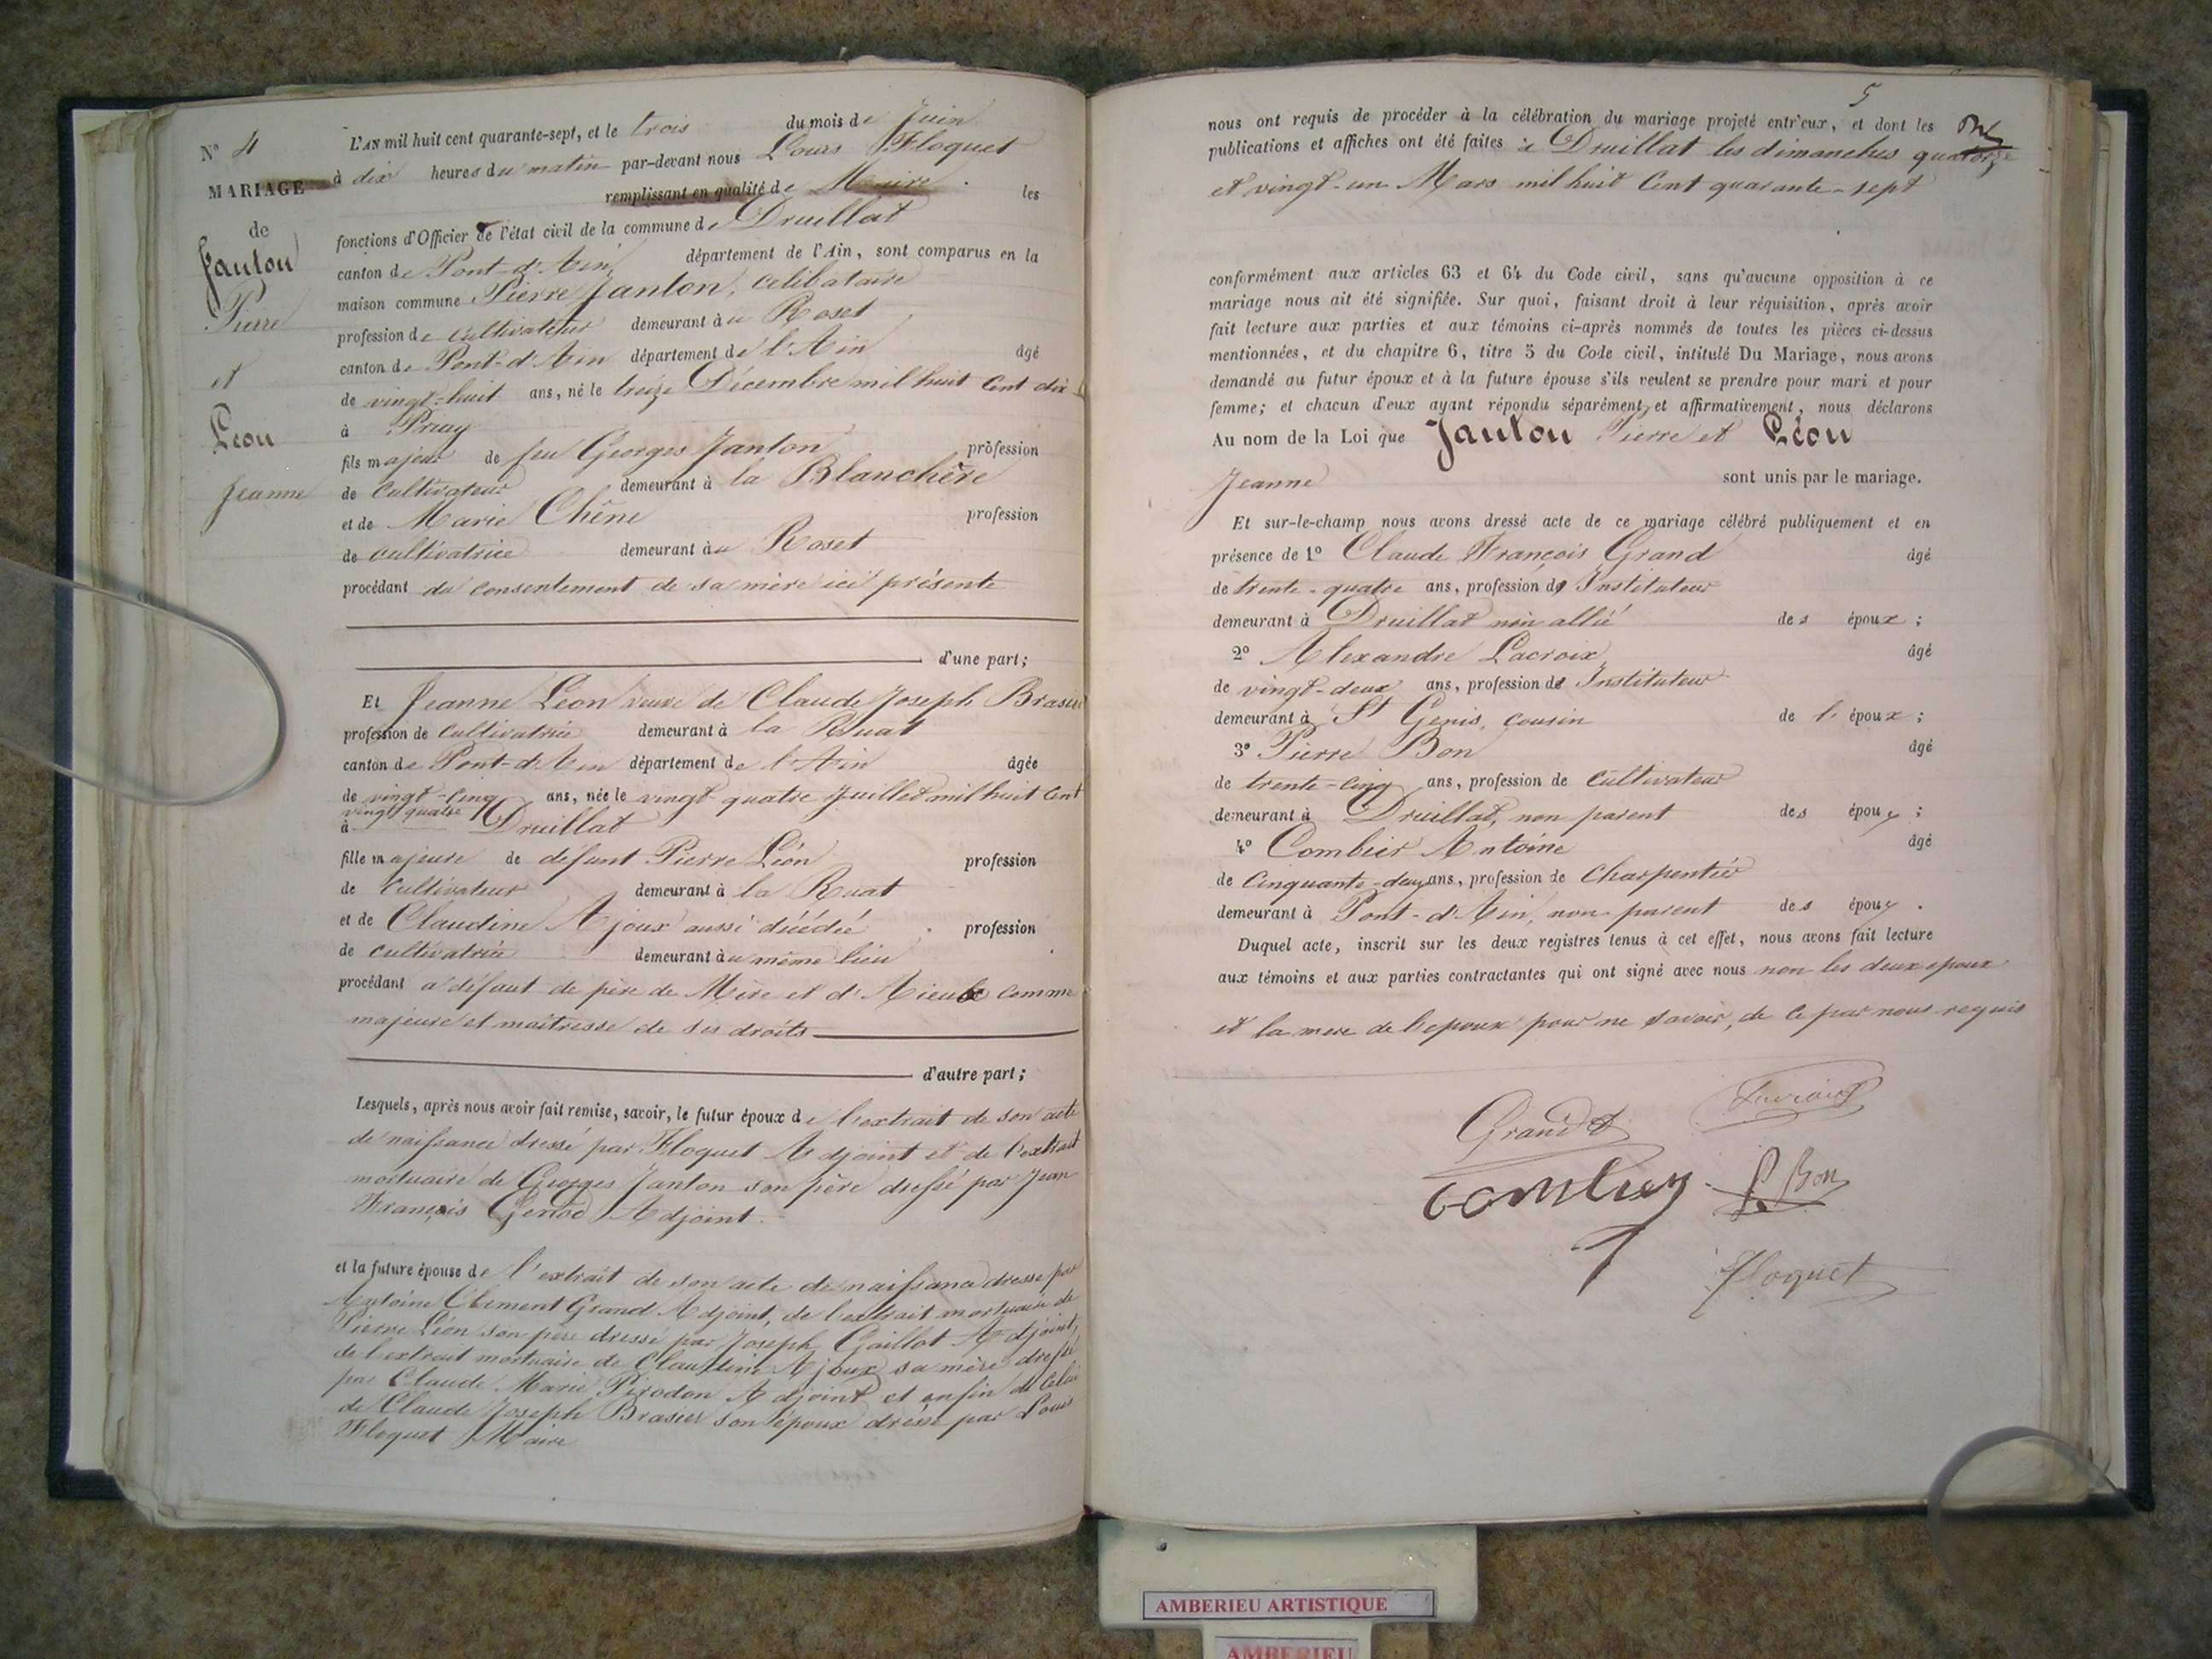 N° 4
MARIAGE
de
Janton
Pierre
et
Léon
Jeanne
L'AN mil huit cent quarante-sept, et le trois du mois de Juin
à dix heures du matin par-devant nous Louis Floquet
remplissant en qualité de Maire les
fonctions d'Officier de l'état civil de la commune de Druillat
canton de Pont-d'Ain, département de l'Ain, sont comparus en la
maison commune Pierre Janton, célibataire
profession de cultivateur demeurant au Roset
canton de Pont-d'Ain département de l'Ain âgé
de vingt-huit ans, né le treize Décembre mil huit Cent dix
à Priay
fils majeur de feu Georges Janton profession
de cultivateur demeurant à la Blanchère
et de Marie Chêne profession
de cultivatrice demeurant au Roset
procédant du consentement de sa mère ici présente
d'une part;
Et Jeanne Léon veuve de Claude Joseph Brasier
profession de cultivatrice demeurant à la Ruat
canton de Pont-d'Ain département de l'Ain âgée
de vingt-cinq ans, née le vingt quatre Juillet mil huit Cent
vingt quatre
à Druillat
fille majeure de défunt Pierre Léon profession
de cultivateur demeurant à la Ruat
et de Claudine Ajoux aussi décédée profession
de cultivatrice demeurant au même lieu
procédant à défaut de père de Mère et d'Aieux comme
majeure et maîtresse de ses droits
d'autre part;
Lesquels, après nous avoir fait remise, savoir, le futur époux de l'extrait de son acte
de naissance dressé par Floquet Adjoint et de l'extrait
mortuaire de Georges Janton son père dressé par Jean
François Adjoint.
et la future épouse de l'extrait de son acte de naissance dressé par
Antoine Clément Grand Adjoint, de l'extrait mortuaire de
Pierre Léon son père dressé par Joseph Gaillot Adjoint,
de l'extrait mortuaire de Claudine Ajoux sa mère dressé
par Claude Marie Pirodon Adjoint et enfin de celui
de Claude Joseph Brasier son époux dressé par Louis
Floquet Maire
5
nous ont requis de procéder à la célébration du mariage projeté entr'eux, et dont les
publications et affiches ont été faites à Druillat les dimanches quatorze
et vingt-un Mars mil huit Cent quarante-sept
conformément aux articles 63 et 64 du Code civil, sans qu'aucune opposition à ce
mariage nous ait été signifiée. Sur quoi, faisant droit à leur réquisition, après avoir
fait lecture aux parties et aux témoins ci-après nommés de toutes les pièces ci-dessus
mentionnées, et du chapitre 6, titre 5 du Code civil, intitulé Du Mariage, nous avons
demandé au futur époux et à la future épouse s'ils veulent se prendre pour mari et pour
femme; et chacun d'eux ayant répondu séparément et affirmativement, nous déclarons
Au nom de la Loi que Janton Pierre et Léon
Jeanne sont unis par le mariage.
Et sur-le-champ nous avons dressé acte de ce mariage célébré publiquement et en
présence de 1° Claude François Grand âgé
de trente-quatre ans, profession d' Instituteur
demeurant à Druillat non allié des époux;
2° Alexandre Lacroix âgé
de vingt-deux ans, profession d' Instituteur
demeurant à St Genis, cousin de l' époux;
3° Pierre Bon âgé
de trente-cinq ans, profession de cultivateur
demeurant à Druillat, non parent des époux;
4° Combier Antoine âgé
de Cinquante-deux ans, profession de Charpentier
demeurant à Pont-d'Ain, non parent des époux.
Duquel acte, inscrit sur les deux registres tenus à cet effet, nous avons fait lecture
aux témoins et aux parties contractantes qui ont signé avec nous non les deux epoux
et la mere de l'epoux pour ne savoir, de ce par nous requis
Grand
Combier
P. Bon
Floquet
AMBERIEU ARTISTIQUE
AMBERIEU